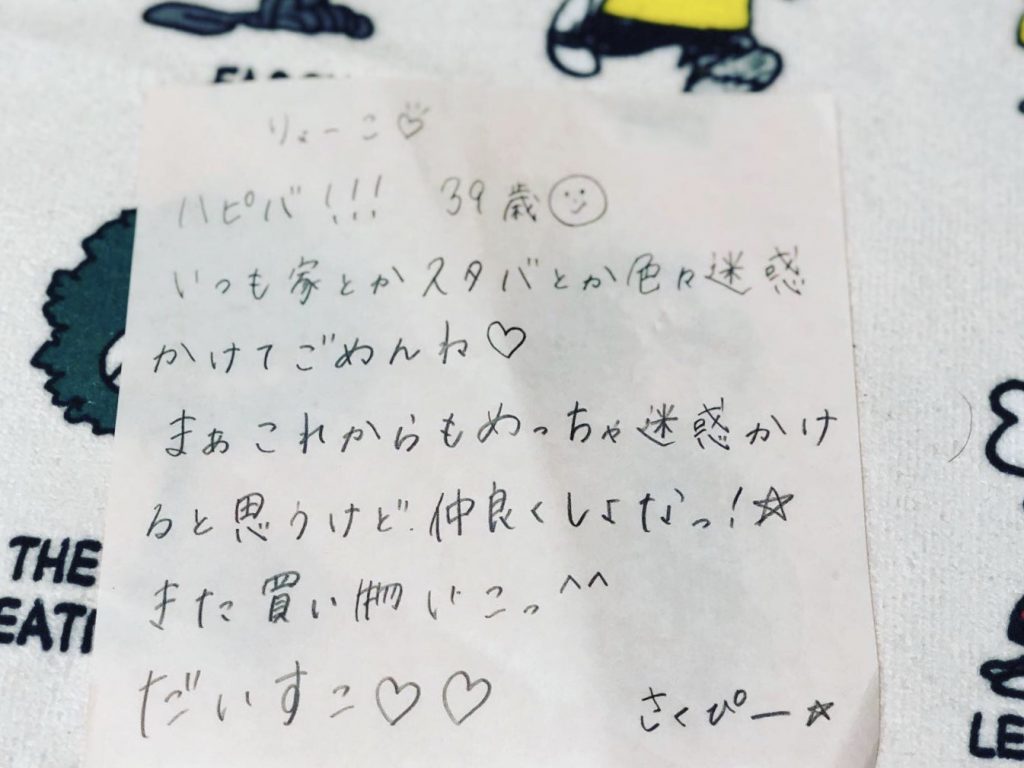 りょーこ♡
ハピバ!!! 39歳☺
いつも家とかスタバとか色々迷惑
かけてごめんね♡
まぁこれからもめっちゃ迷惑かけ
ると思うけど、仲良くしよなっ!☆
また買い物いこっ^^
だいすこ♡♡
さくぴー☆
THE
EATI
LE